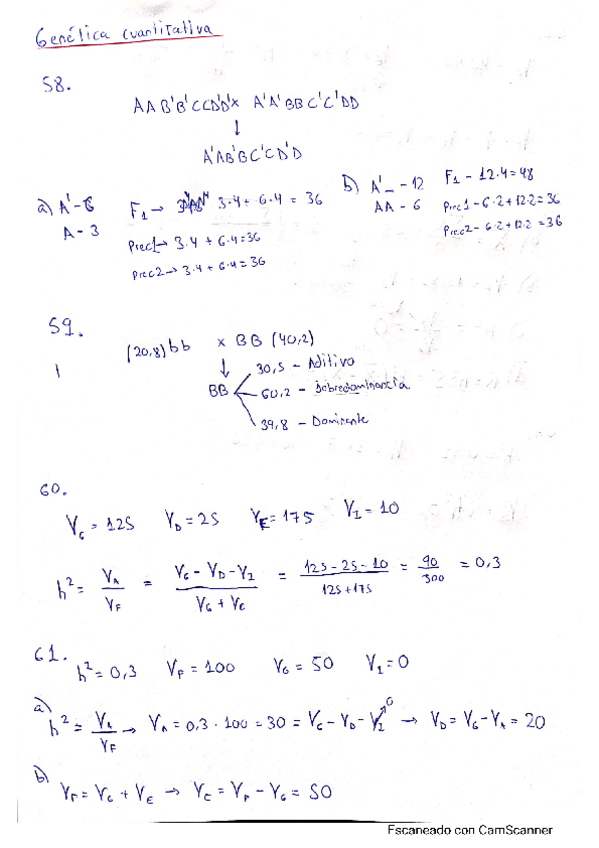 Genética cuantitativa
58.
AAB'B'CCD'D' x A'A'BBC'C'DD
↓
A'AB'BC'CD'D
a) A' - 6
A - 3
F1 → 3·4 + 6·4 = 36
Prec1 → 3·4 + 6·4 = 36
Prec2 → 3·4 + 6·4 = 36
b) A'_ - 12
AA - 6
F1 - 12·4 = 48
Prec1 - 6·2 + 12·2 = 36
Prec2 - 6·2 + 12·2 = 36
59.
(20,8) bb x BB (40,2)
↓
BB
30,5 - Aditivo
60,2 - Sobredominancia
39,8 - Dominante
60.
VG = 125 VD = 25 VE = 175 VI = 10
h² = VA/VF = (VG - VD - VI)/(VG + VE) = (125 - 25 - 10)/(125 + 175) = 90/300 = 0,3
61.
h² = 0,3 VP = 100 VG = 50 VI = 0
a) h² = VA/VF → VA = 0,3 · 100 = 30 = VG - VD - VI → 0 → VD = VG - VA = 20
b) VF = VG + VE → VE = VP - VG = 50
Escaneado con CamScanner